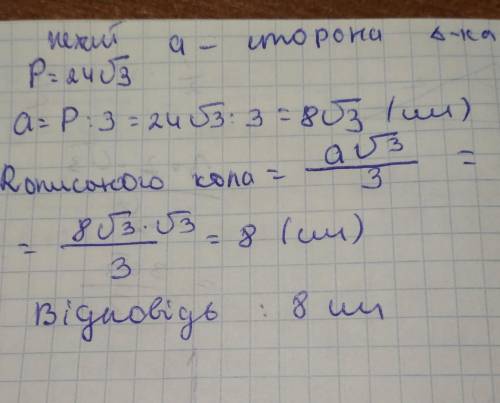 нехай a - сторона Δ-ка
P = 24√3
a = P : 3 = 24√3 : 3 = 8√3 (см)
R описаного кола = a√3 / 3 =
= 8√3 · √3 / 3 = 8 (см)
Відповідь : 8 см